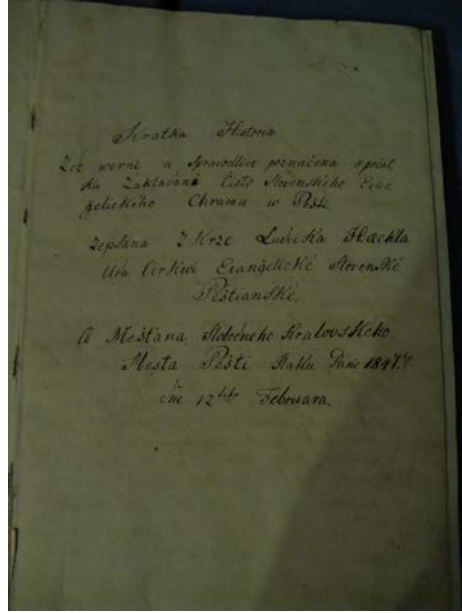 Kratka Historia
Zoč werni a Sprawedliwe poznačená o počat
ku Zakladaná Čistó Slovenského Evan
gelického Chramu w Pešti.
Zepsana Z Krze Ludvika Haekla
Uda Cirkwi Evangelické Slovenské
Peštianské,
A Meštana Stolečneho Kralovského
Mesta Pešti Rakĺu Páne 1847.
dňe 12 Februara.